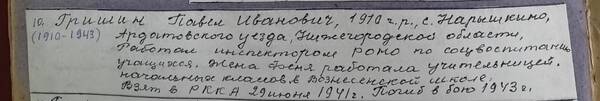 10. Гришин Павел Иванович, 1910 г.р., с. Нарышкино,
(1910-1943) Ардатовского уезда, Нижегородской области,
Работал инспектором РОНО по соцвоспитанию
учащихся. Жена Феня работала учительницей
начальных классов в Вознесенской школе.
Взят в РККА 29 июня 1941г. Погиб в бою 1943 г.